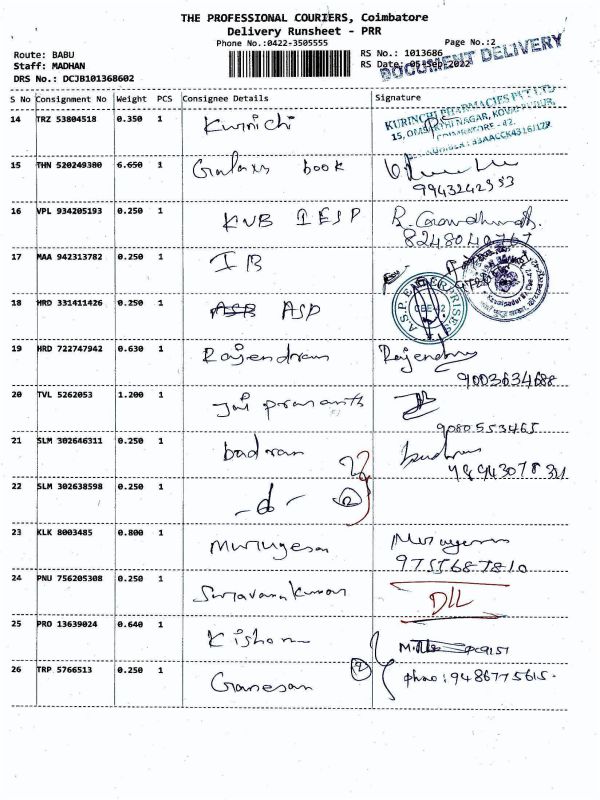 THE PROFESSIONAL COURIERS, Coimbatore
Delivery Runsheet - PRR
Phone No.:0422-3505555
Page No.:2
Route: BABU
RS No.: 1013686
Staff: MADHAN
RS Date: 05-Sep-2022
DOCUMENT DELIVERY
DRS No.: DCJB101368602
S No Consignment No Weight PCS Consignee Details Signature
14 TRZ 53804518 0.350 1 Kurinichi
KURINCHI PHARMACIES PVT LTD
COIMBATORE - 42.
15 THN 520249380 6.650 1 Galaxy book
9943242353
16 VPL 934205193 0.250 1 KVB IESP
8248040767
17 MAA 942313782 0.250 1 IB
18 HRD 331411426 0.250 1 ASP
A.S.P. ENTERPRISES
19 HRD 722747942 0.630 1 Rajendran Rajendran
9003634688
20 TVL 5262053 1.200 1 Jai prasanth
9080553465
21 SLM 302646311 0.250 1 badran
22 SLM 302638598 0.250 1 -d- 2
23 KLK 8003485 0.800 1 Murugesan Murugesan
9755687810
24 PNU 756205308 0.250 1 Saravana Kumar DLL
25 PRO 13639024 0.640 1 Kishore
26 TRP 5766513 0.250 1 Ganesan phno: 9486775615.